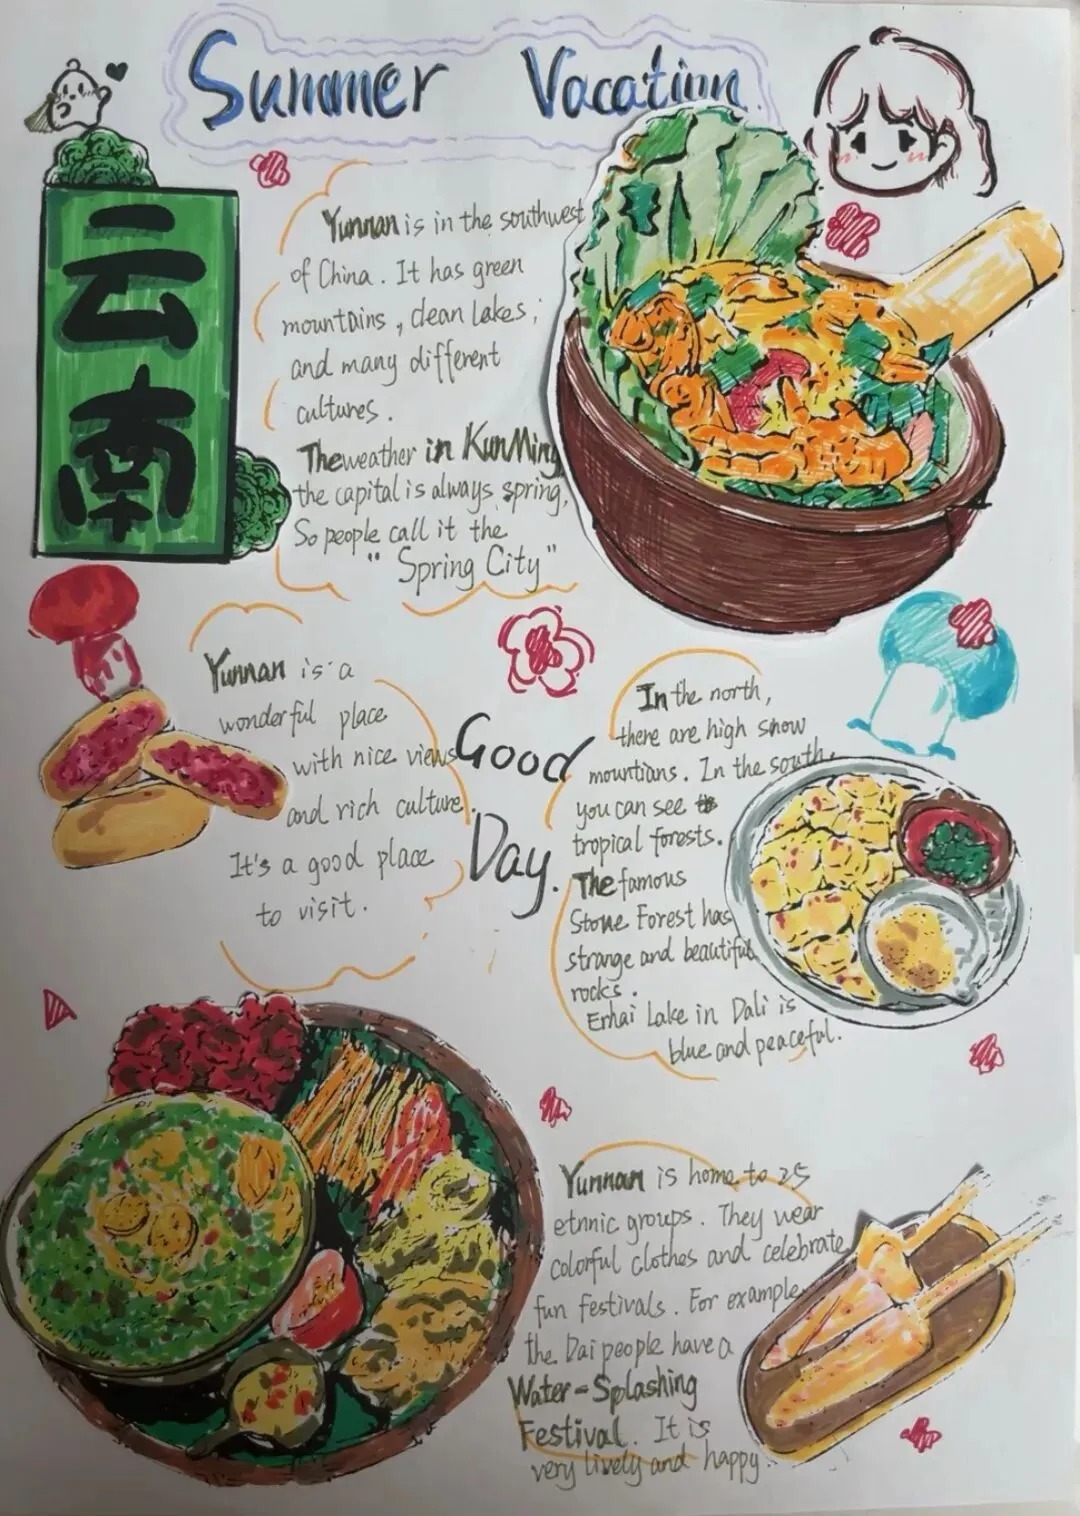 Summer Vacation
云南
Yunnan is in the southwest
of China. It has green
mountains, clean lakes,
and many different
cultures.
The weather in KunMing
the capital is always spring,
So people call it the
"Spring City"
Yunnan is a
wonderful place
with nice views
and rich culture.
It's a good place
to visit.
Good
Day.
In the north,
there are high snow
mountians. In the south,
you can see
tropical forests.
The famous
Stone Forest has
strange and beautiful
rocks.
Erhai Lake in Dali is
blue and peaceful.
Yunnan is home to 25
etnnic groups. They wear
colorful clothes and celebrate
fun festivals. For example,
the Dai people have a
Water-Splashing
Festival. It is
very lively and happy.